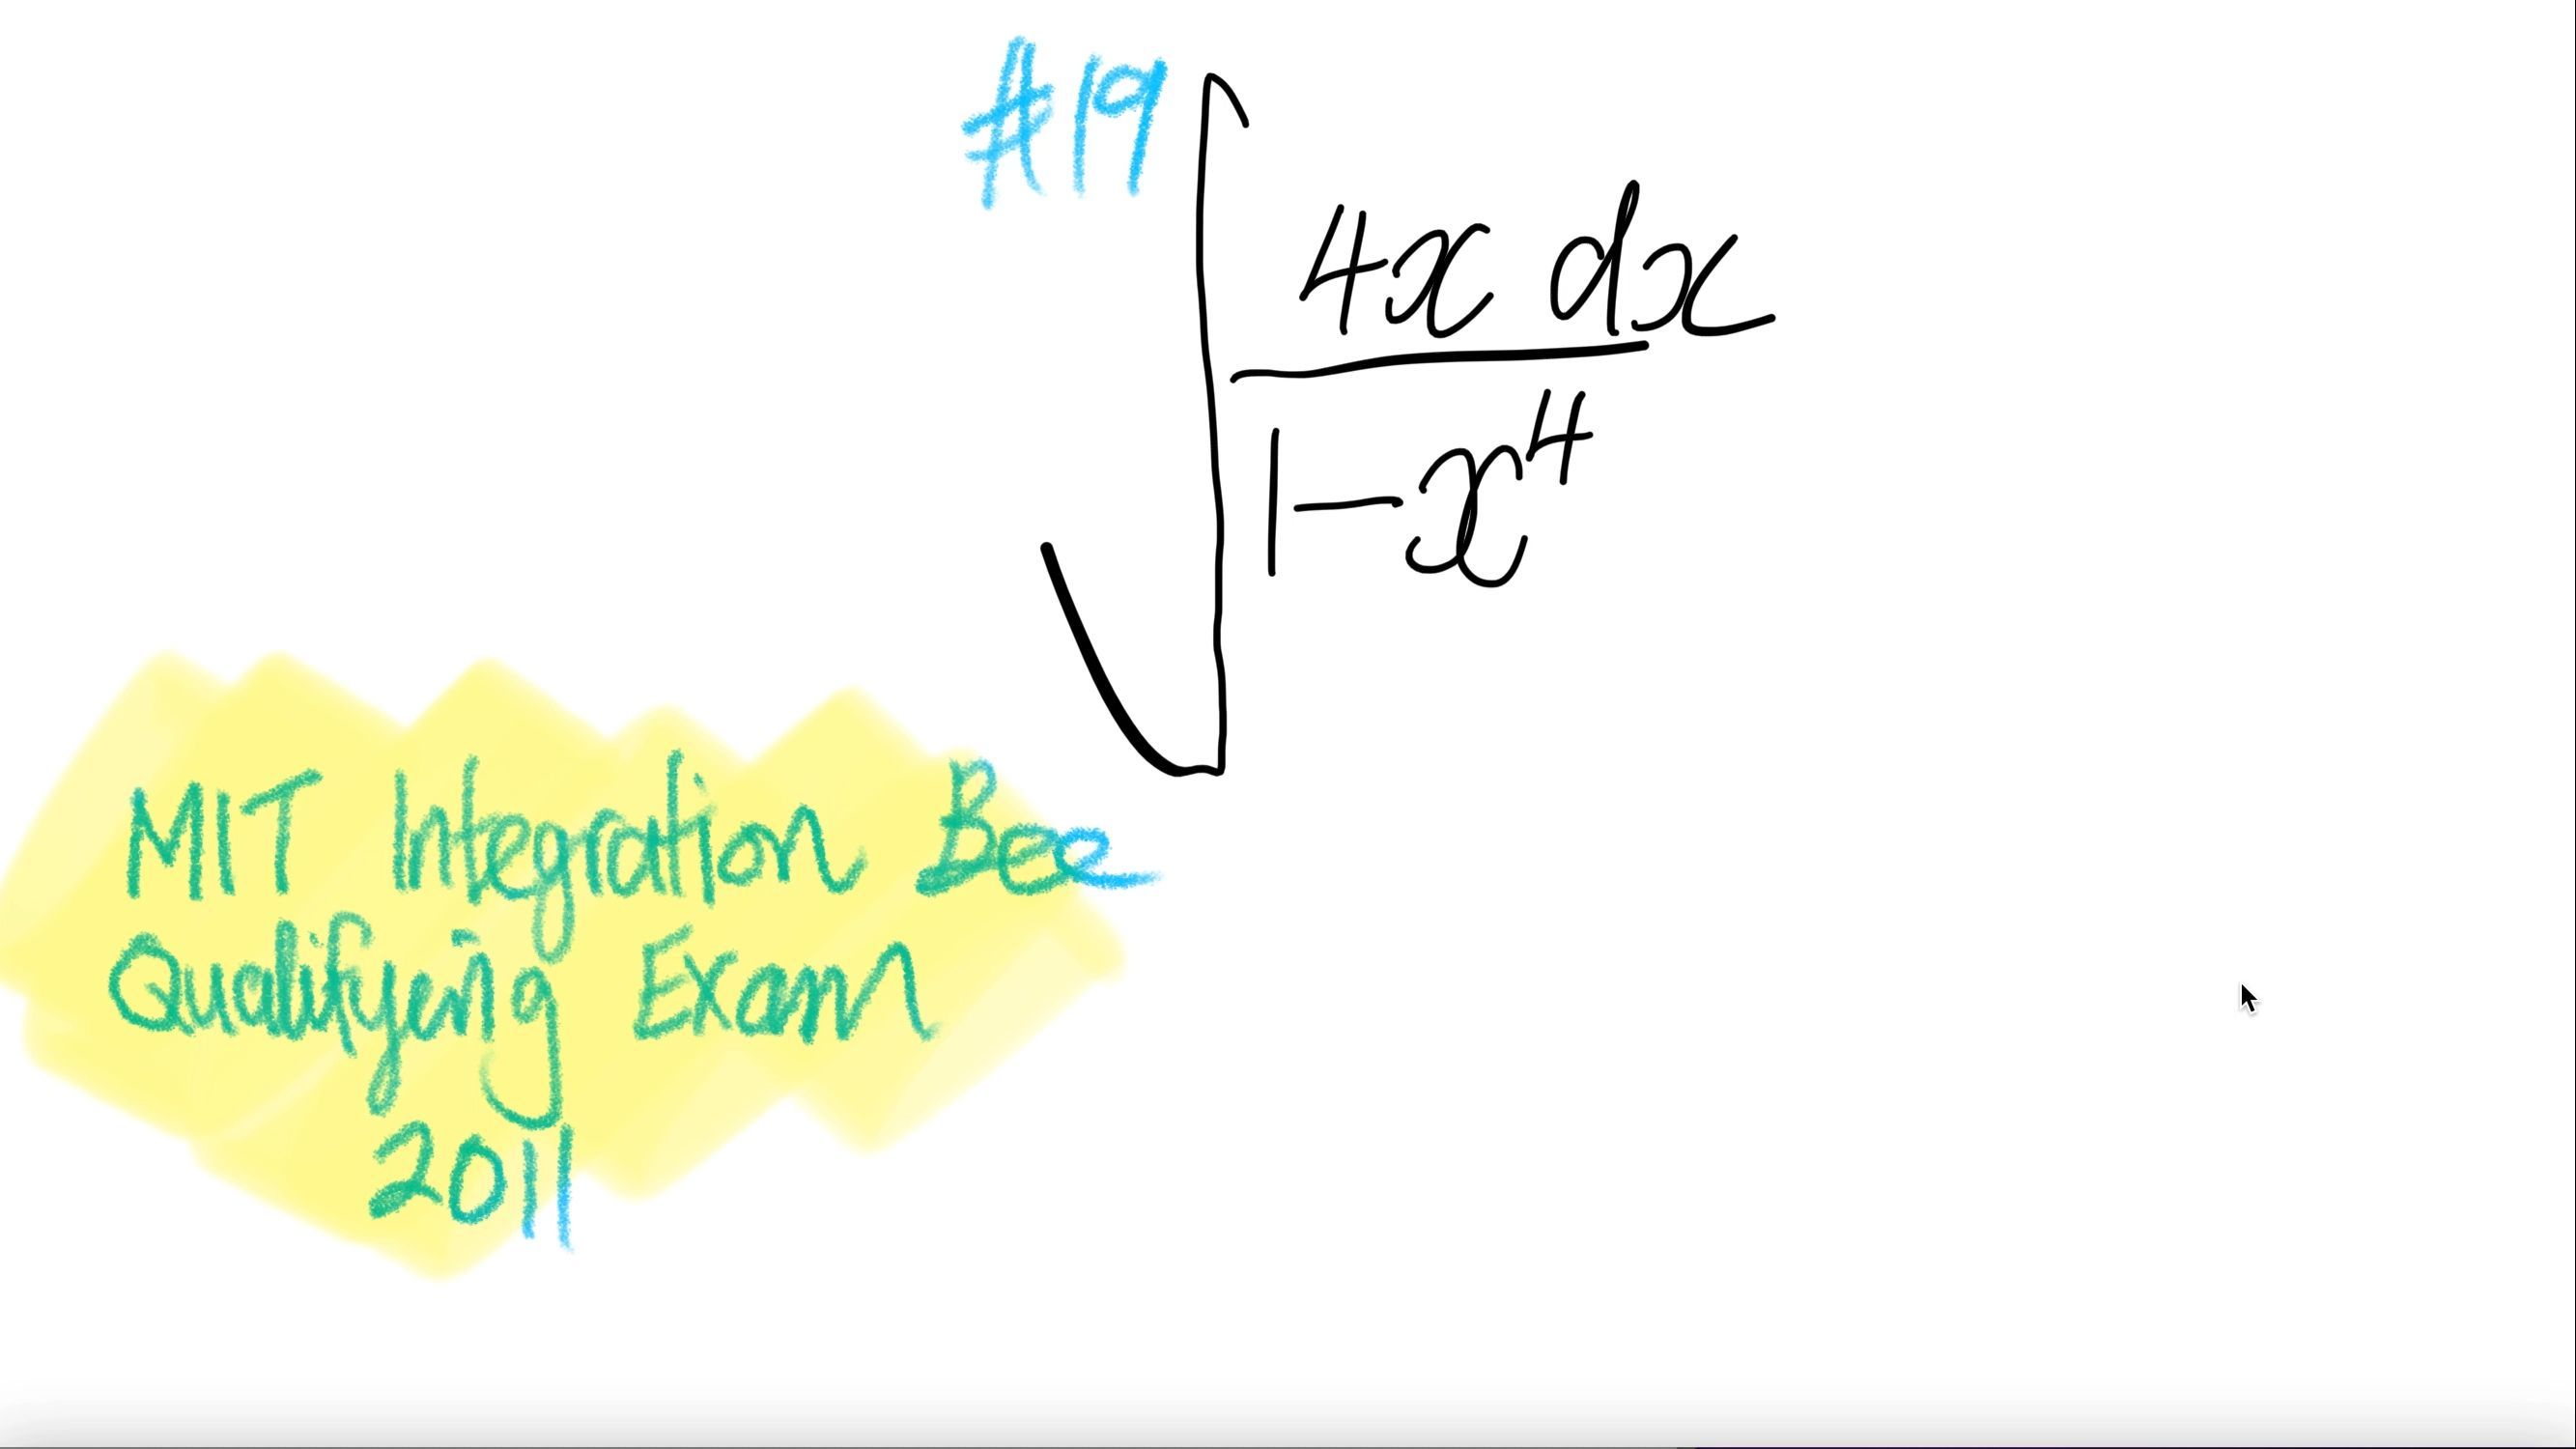 #19
∫ 4x dx
1-x⁴
MIT Integration Bee
Qualifying Exam
2011